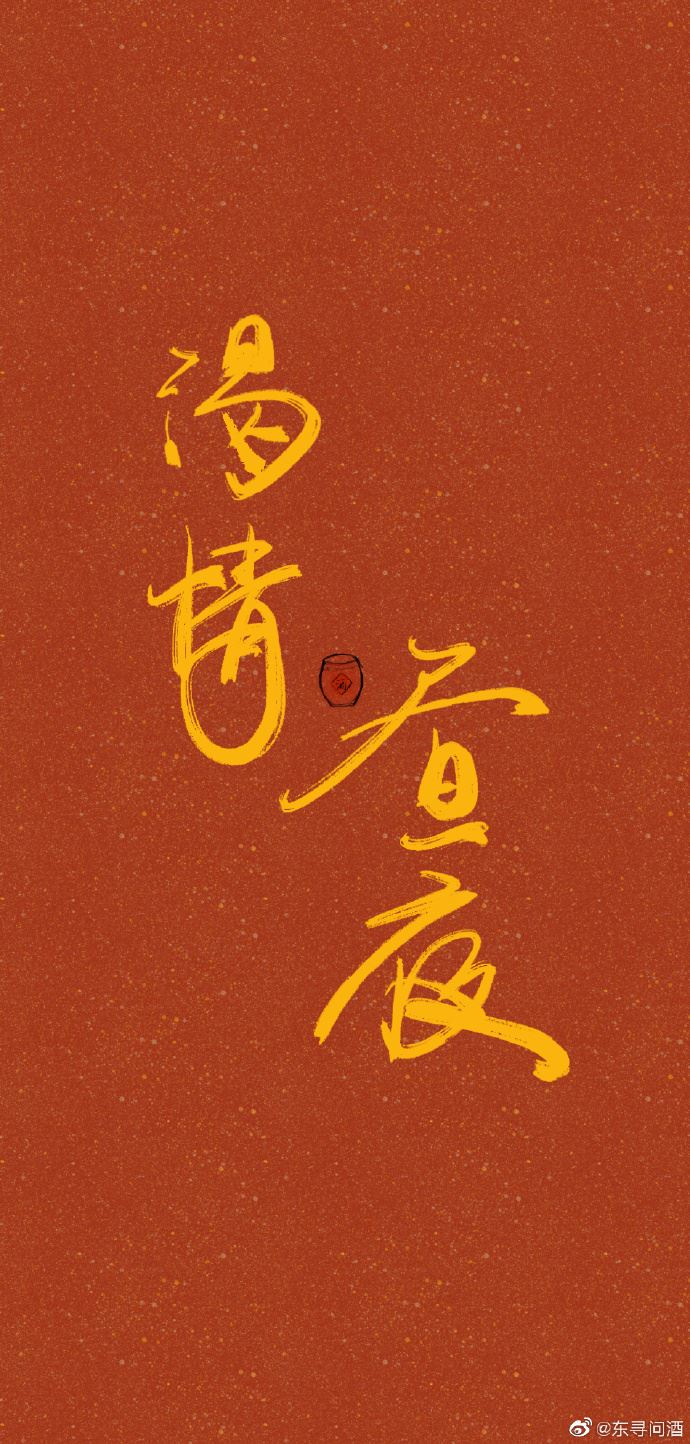 渴情
昼夜
酒
@东寻问酒